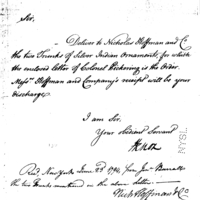 Sir.
Deliver to Nicholas Hoffman and Co
the two Trunks of Silver Indian Ornaments, for which
the enclosed letter of Colonel Pickering is the Order.
Messrs Hoffman and Company's receipt will be your
discharge.
I am Sir.
Your obedient Servant
HKnox
Recd. New York June 23d 1794. from
the two Trunks mentioned in the above letter.
Nichs Hoffman & Co
NYSL